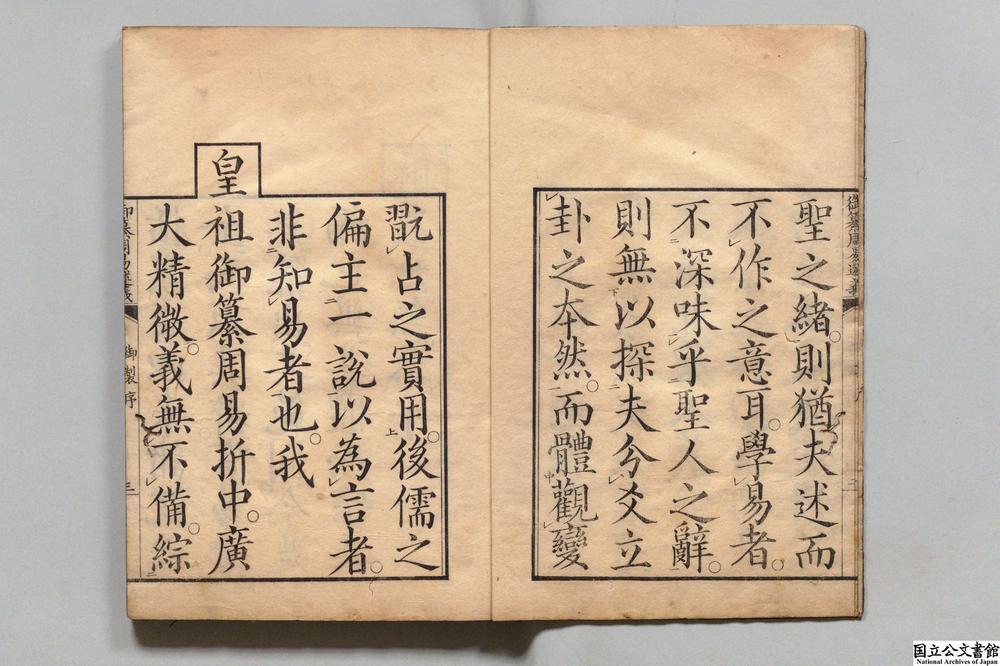 御纂周易述義
聖之緒則猶夫述而
不作之意耳學易者
不深味乎聖人之辭
則無以探夫分爻立
卦之本然而體觀變
翫占之實用後儒之
偏主一說以為言者
非知易者也我
皇
祖御纂周易折中廣
大精微義無不備綜
御纂周易述義
御製序
三
国立公文書館
National Archives of Japan